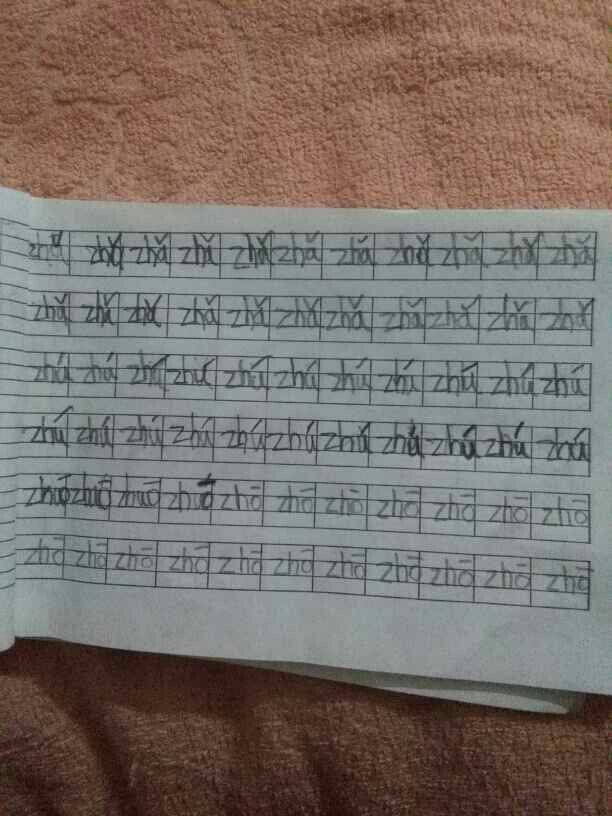 zhǎ zhǎ zhǎ zhǎ zhǎ zhǎ zhǎ zhǎ zhǎ zhǎ zhǎ
zhǎ zhǎ zhǎ zhǎ zhǎ zhǎ zhǎ zhǎ zhǎ zhǎ zhǎ
zhú zhú zhú zhú zhú zhú zhú zhú zhú zhú zhú
zhú zhú zhú zhú zhú zhú zhú zhú zhú zhú zhú
zhuō zhuō zhuō zhuō zhō zhō zhō zhō zhō zhō zhō
zhō zhō zhō zhō zhō zhō zhō zhō zhō zhō zhō